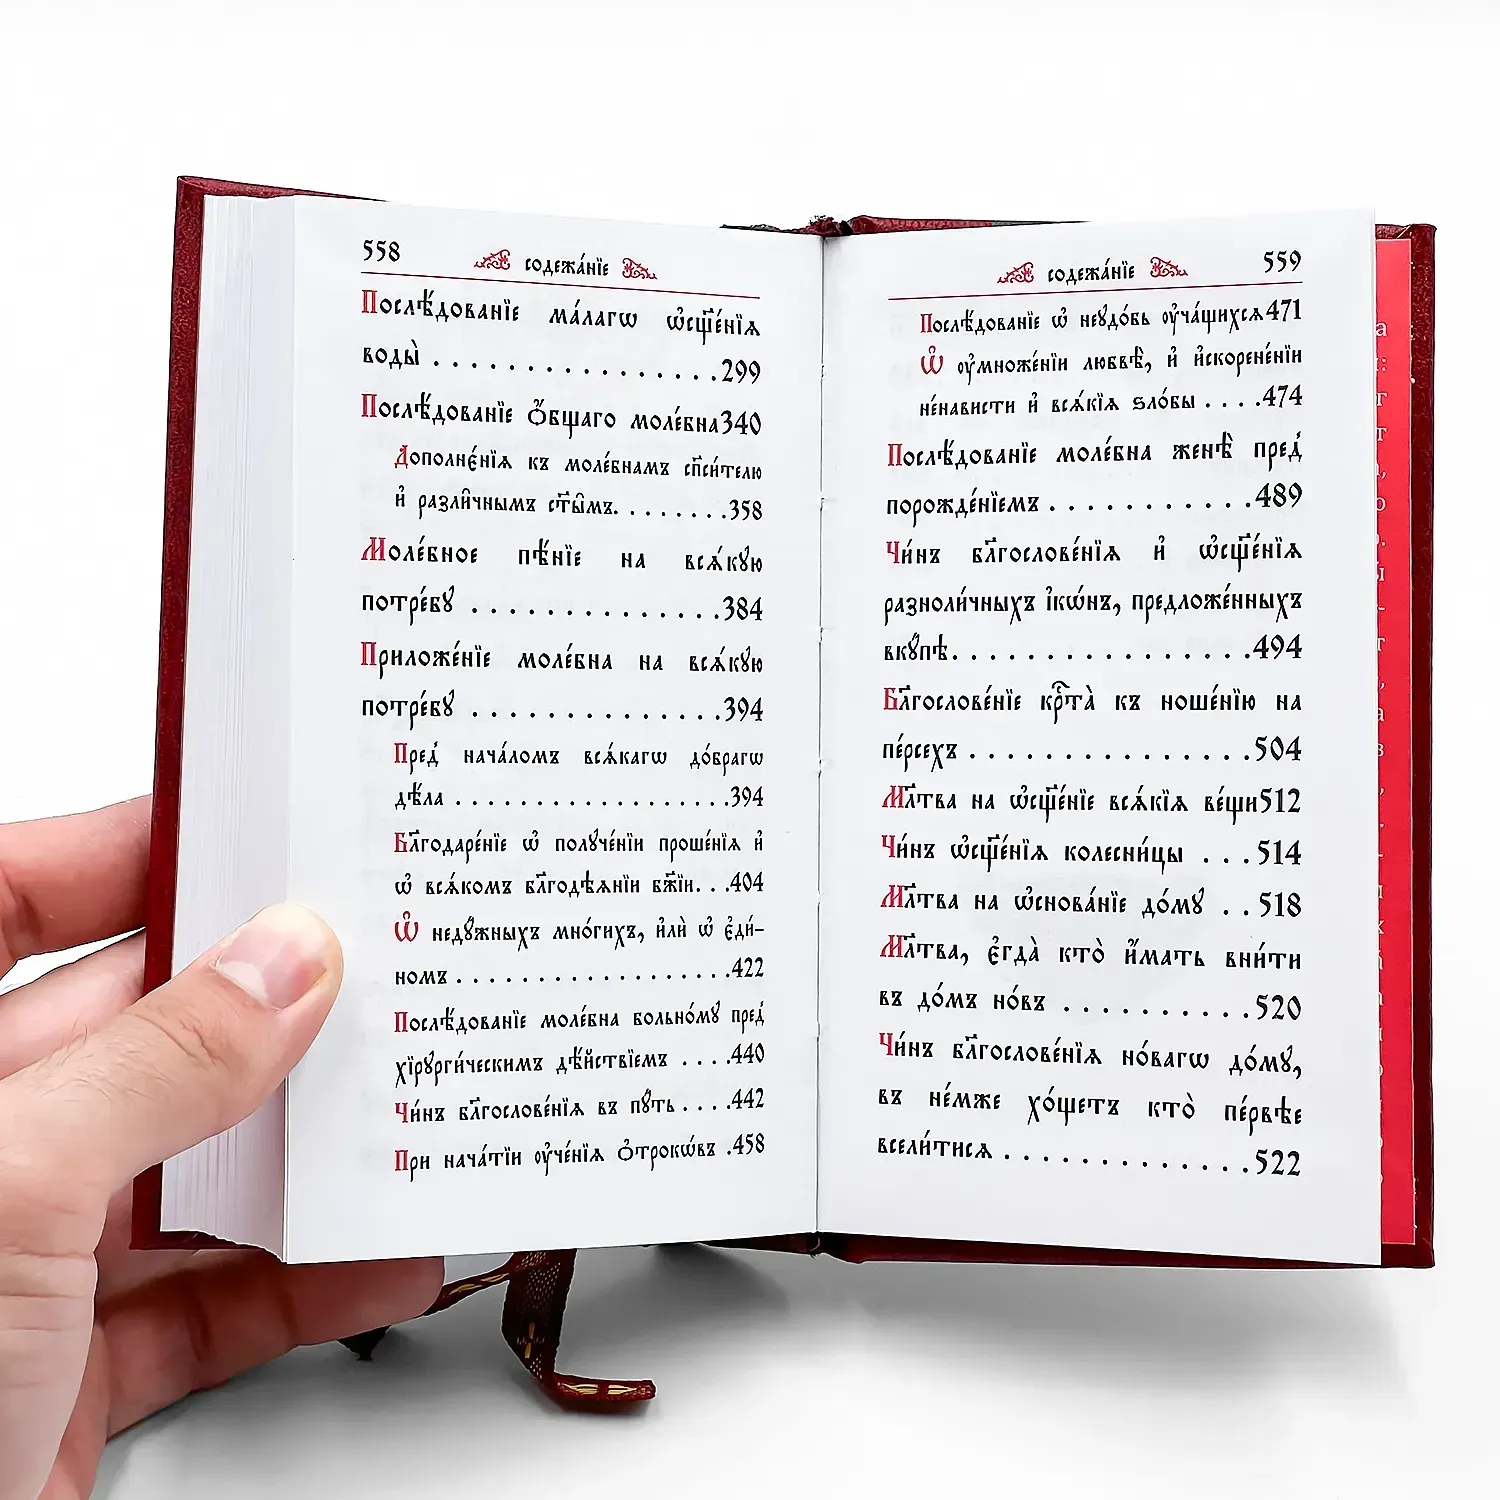 558
содежа́нїе
Послѣ́дованїе ма́лагѡ ѡ҆сщ҃е́нїѧ
воды̀ . . . . . . . . . . . . . . . . 299
Послѣ́дованїе Ѻ҆́бщаго моле́бна 340
Дополне́нїѧ къ моле́бнамъ сп҃си́телю
и҆ разли̑чнымъ ст҃ы̑мъ. . . . . . . . 358
Моле́бное пѣ́нїе на всѧ́кꙋю
потре́бꙋ . . . . . . . . . . . . . . 384
Приложе́нїе моле́бна на всѧ́кꙋю
потре́бꙋ . . . . . . . . . . . . . . 394
Пред̾ нача́ломъ всѧ́кагѡ до́брагѡ
дѣ́ла . . . . . . . . . . . . . . . . . . . 394
Бл҃годаре́нїе ѡ҆ полꙋче́нїи проше́нїѧ и҆
ѡ҆ всѧ́комъ бл҃годѣѧ́нїи бж҃їи. . . 404
Ѡ҆ недꙋ́жныхъ мно́гихъ, и҆лѝ ѡ҆ є҆ди́-
номъ . . . . . . . . . . . . . . . . . . . 422
Послѣ́дованїе моле́бна больно́мꙋ пред̾
хїрꙋрги́ческимъ дѣ́йствїемъ . . . . 440
Чи́нъ бл҃гослове́нїѧ въ пꙋ́ть . . . . 442
При нача́тїи оу҆че́нїѧ ѻ҆трокѡ́въ . 458
содежа́нїе
559
Послѣ́дованїе ѡ҆ неꙋдо́бь оу҆ча́щихсѧ 471
Ѡ҆ оу҆множе́нїи любвѐ, и҆ и҆скорене́нїи
не́нависти и҆ всѧ́кїѧ ѕло́бы . . . . 474
Послѣ́дованїе моле́бна женѣ̀ пред̾
порожде́нїемъ . . . . . . . . . . . 489
Чи́нъ бл҃гослове́нїѧ и҆ ѡ҆сщ҃е́нїѧ
разноли́чныхъ і҆кѡ́нъ, предложе́нныхъ
вкꙋ́пѣ. . . . . . . . . . . . . . . . 494
Бл҃гослове́нїе крⷭ҇та̀ къ ноше́нїю на
пе́рсехъ . . . . . . . . . . . . . . . 504
Мл҃тва на ѡ҆сщ҃е́нїе всѧ́кїѧ ве́щи 512
Чи́нъ ѡ҆сщ҃е́нїѧ колесни́цы . . . 514
Мл҃тва на ѡ҆снова́нїе до́мꙋ . . 518
Мл҃тва, є҆гда̀ кто̀ и҆́мать вни́ти
въ до́мъ но́въ . . . . . . . . . . 520
Чи́нъ бл҃гослове́нїѧ но́вагѡ до́мꙋ,
въ не́мже хо́щетъ кто̀ пе́рвѣе
всели́тисѧ . . . . . . . . . . . . . 522